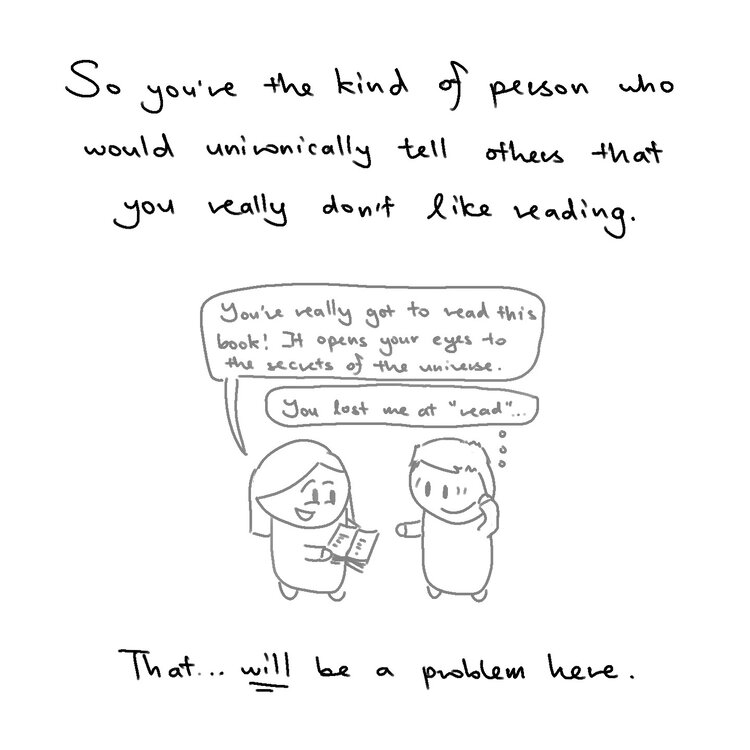 So you're the kind of person who
would unironically tell others that
you really don't like reading.
You've really got to read this
book! It opens your eyes to
the secrets of the universe.
You lost me at "read"...
That... will be a problem here.